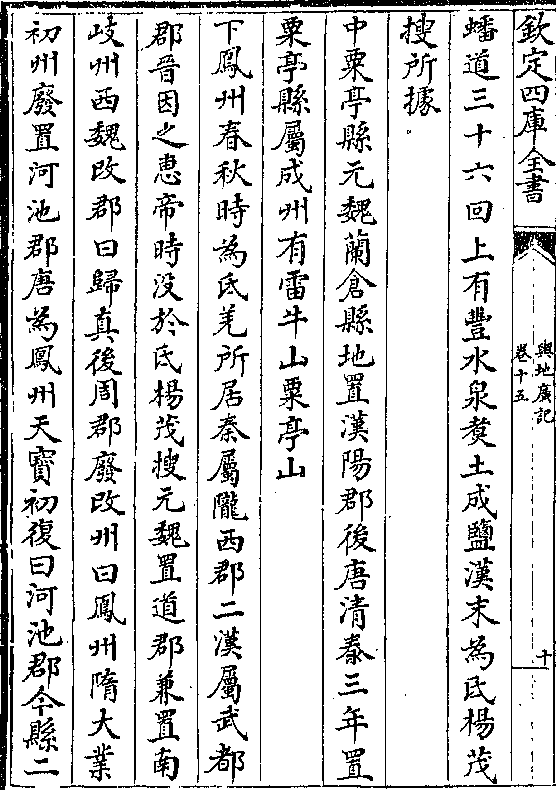 欽定四庫全書
輿地廣記
卷十五
十
蟠道三十六回上有豐水泉煑土成鹽漢末為氐楊茂
搜所據。
中粟亭縣元魏蘭倉縣地置漢陽郡後唐清泰三年置
粟亭縣屬成州有雷牛山粟亭山
下鳳州春秋時為氐羌所居秦屬隴西郡二漢屬武都
郡晉因之惠帝時没於氐楊茂搜元魏置道郡兼置南
岐州西魏改郡曰歸真後周郡廢改州曰鳳州隋大業
初州廢置河池郡唐為鳳州天寳初復曰河池郡今縣二